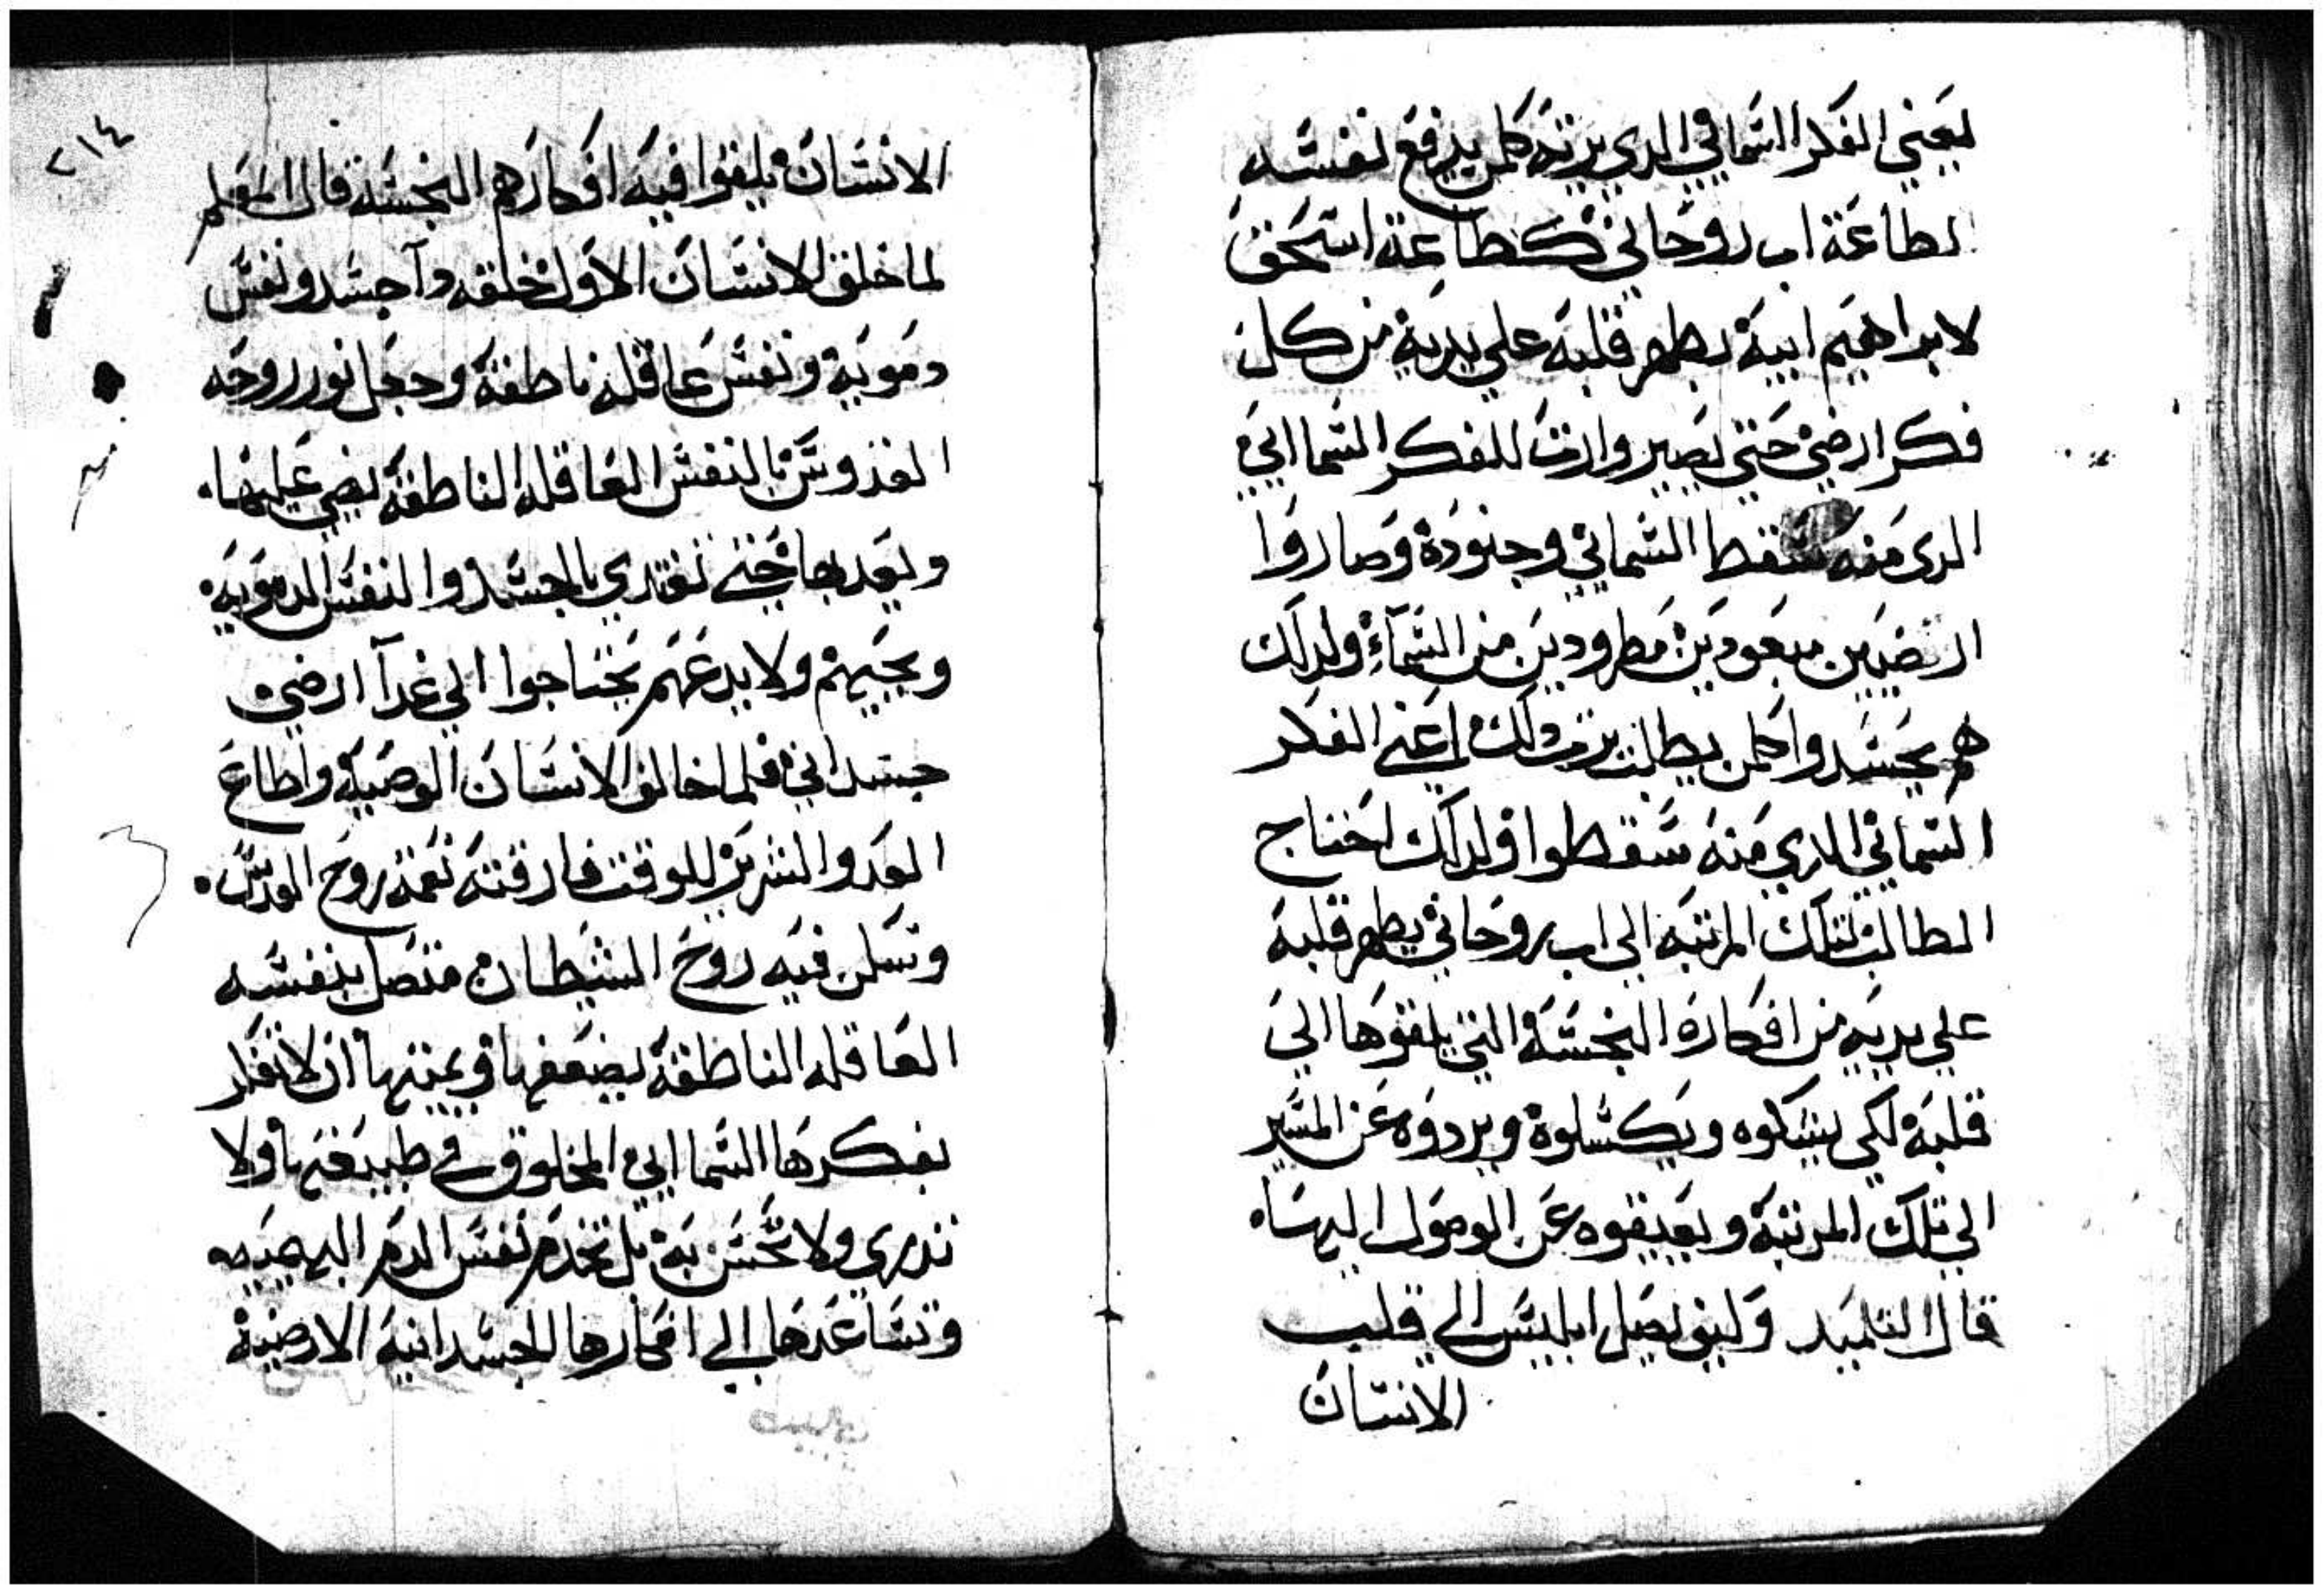 ليعني الفكر السماني الدي يرته كلمن يدفع نفسه
لطاعة اب روحاني كطاعة اسحق
لابراهيم ابيه يطهر قلبه علي يديه من كل
فكر ارضي حتي يصير وارت للفكر السمااي
الدي منه سقط الشماني وجنوده وصاروا
ارضيين مبعودين مطرودين من السمآء ولدلك
هم يحسدوا كلمن يطلب يرت دلك اعني الفكر
السماني الدي منه سقطوا ولدلك احتاج
الطالب لتلك المرتبه الي اب روحاني يطهر قلبه
علي يديه من افكاره النجسة التي يلقوها الي
قلبه لكي يشكوه ويكسلوه ويردوه عن المسير
الي تلك المرتبة ويعيقوه عن الوصول اليها
قال التلميد وكيف يصل ابليس الي قلب
الانسان
٢١٤
الانسان يلقوا فيه افكارهم النجسة قال المعلم
لما خلق الانسان الاول خلقه دا جسد ونفس
دمويه ونفس عاقله ناطقة وجعل نور روحه
القدوس بالنفس العاقله الناطقة يضي عليها
ويعديها حتي تقتدي بالجسد والنفس الدمويه
ويحييهم ولا يدعهم يحتاجوا الي غدآ ارضي
جسداني فلما خالف الانسان الوصية واطاع
العدو الشرير للوقت فارقته نعمة روح القدس
وسكن فيه روح الشيطان متصل بنفسه
العاقله الناطقة يضعفها ويمنعها ان لا تفكر
بفكرها السمااي المخلوق في طبيعتها ولا
تدري ولا تحس به بل تخدم نفس الدم البهيميه
وتساعدها الي افكارها الجسدانية الارضية